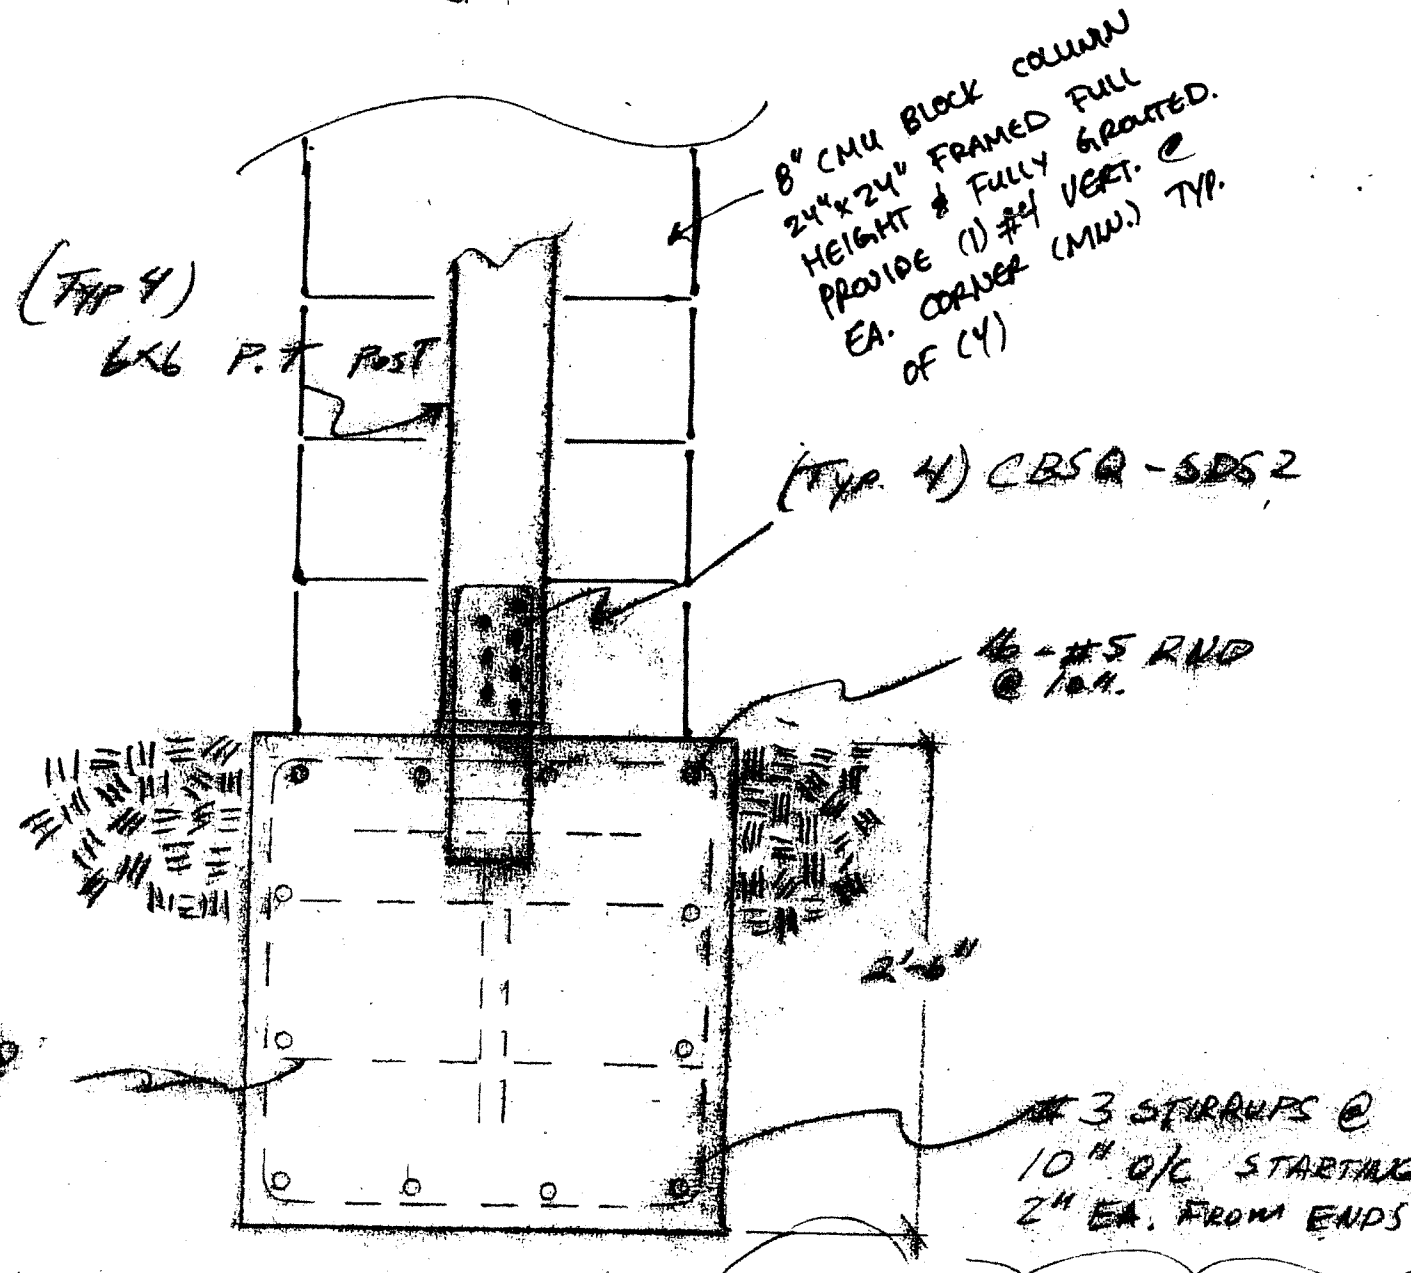 8" CMU BLOCK COLUMN
24"x24" FRAMED FULL
HEIGHT & FULLY GROUTED.
PROVIDE (1) #4 VERT. @
EA. CORNER (MIN.) TYP.
OF (4)
(TYP 4)
6x6 P.T POST
(TYP. 4) CBSQ-SDS2
-#5 RND
@
2'-6"
#3 STIRRUPS @
10" O/C STARTING
2" EA. FROM ENDS